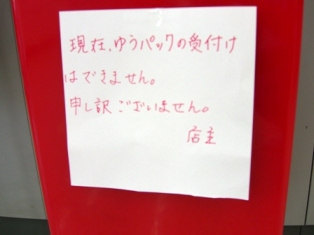 現在、ゆうパックの受付け
はできません。
申し訳ございません。
店主